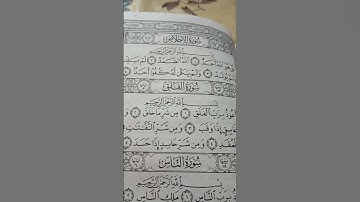 سُورَةُ الْإِخْلَاصِ
بِسْمِ اللَّهِ الرَّحْمَٰنِ الرَّحِيمِ
اللَّهُ أَحَدٌ ١ اللَّهُ الصَّمَدُ ٢ لَمْ
وَلَمْ يَكُن لَّهُ كُفُوًا أَحَدٌ
سُورَةُ الْفَلَقِ
بِسْمِ اللَّهِ الرَّحْمَٰنِ الرَّحِيمِ
بِرَبِّ الْفَلَقِ ١ مِن شَرِّ مَا خَلَقَ ٢
إِذَا وَقَبَ ٣ وَمِن شَرِّ النَّفَّاثَاتِ
وَمِن شَرِّ حَاسِدٍ إِذَا حَسَدَ
سُورَةُ النَّاسِ
بِسْمِ اللَّهِ الرَّحْمَٰنِ الرَّحِيمِ
بِرَبِّ النَّاسِ ١ مَلِكِ النَّاسِ